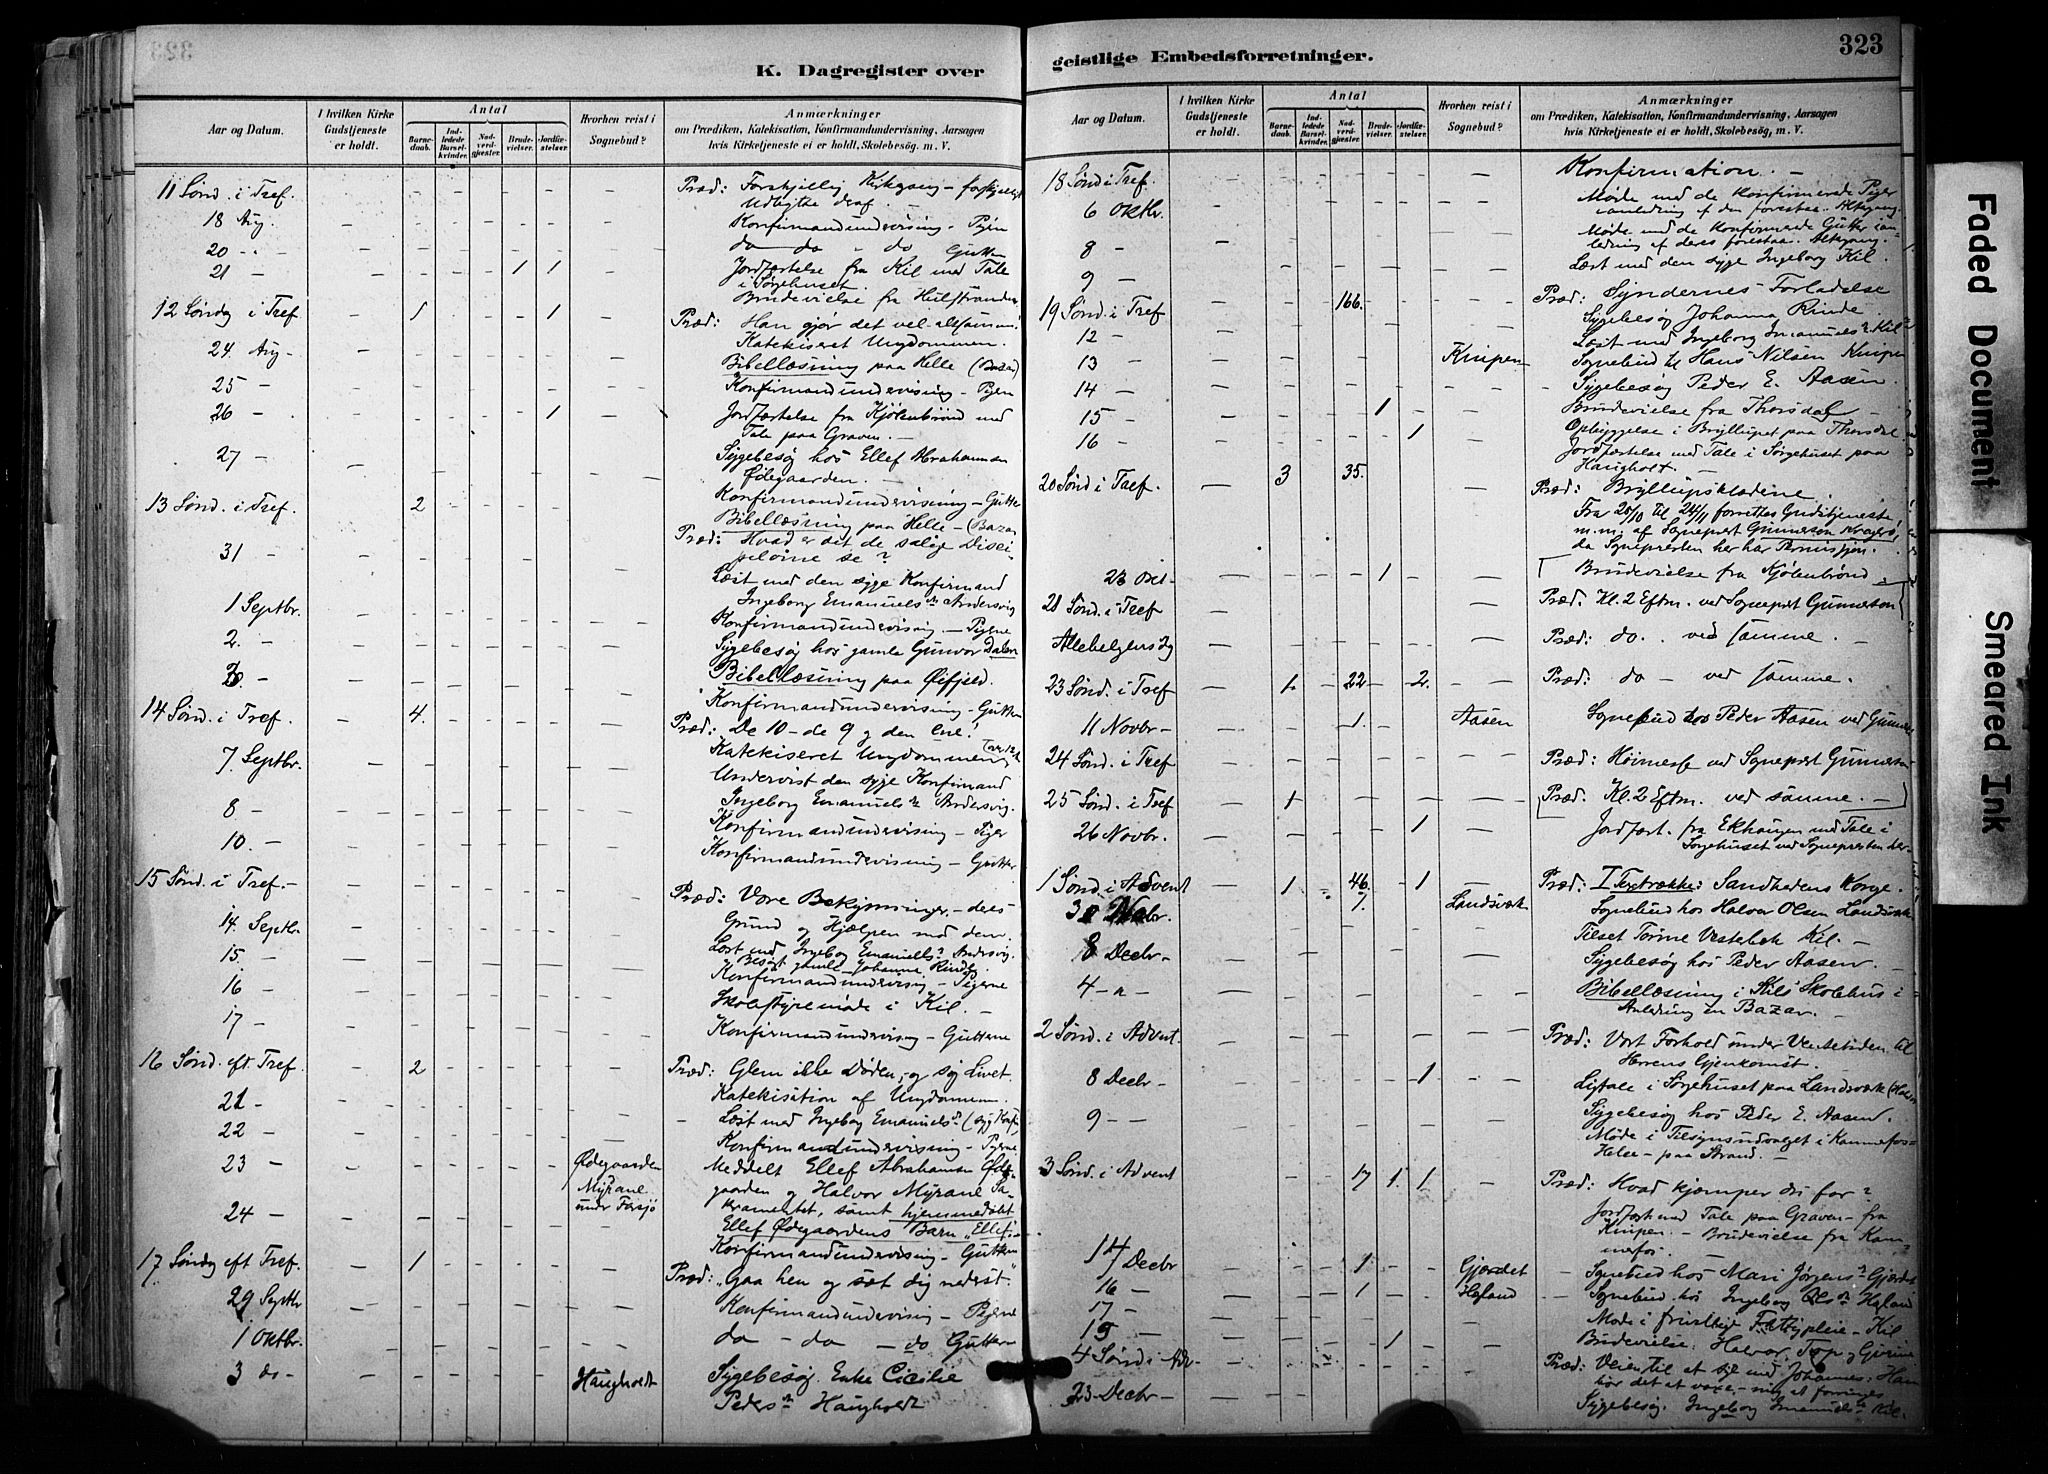 323
K. Dagregister over
geistlige Embedsforretninger.
Aar og Datum.
I hvilken Kirke Gudstjeneste er holdt.
Antal
Barnedaab.
Indledede Barselkvinder.
Nadverdgjæster.
Brudevielser.
Jordfæstelser.
Hvorhen reist i Sognebud?
Anmærkninger
om Prædiken, Katekisation, Konfirmandundervisning, Aarsagen
hvis Kirketjeneste ei er holdt, Skolebesøg. m. V.
11 Sønd. i Tref. Præd: Forskjellig Kirkegang – forskjelligt
Udbytte deraf. –
18 Aug. Konfirmandundervisning – Pigen
20 – do do – do Gutten
21 – 1 1 Jordfæstelse fra Kil med Tale
i Sørgehuset.
Brudevielse fra Hulstranden
12 Søndag i Tref 1 1 Præd: Han gjør det vel altsammen!
Katekiseret Ungdommen.
24. Aug – Bibellæsning paa Helle (Bazar)
25 – Konfirmandundervisning – Pigen
26 – 1 Jordfæstelse fra Kjølebrønd med
Tale paa Graven. –
27 – Sygebesøg hos Ellef Abrahamsen
Ødegaarden. –
Konfirmandundervisning – Gutten
13 Sønd. i Tref. 2 Bibellæsning paa Helle – (Bazar
Præd: Hvad er det de salige Disci-
plene se?
31 – Læst med den syge Konfirmand
Ingeborg Emanuelsdr Andersvig
1 Septbr. Konfirmandundervisning – Pigerne
2. – Sygebesøg hos gamle Gunvor Dalen
3. – Bibellæsning paa Øifjeld.
Konfirmandundervisning – Gutten
14 Sønd. i Tref. 4. Præd: De 10 – de 9 og den ene!
Katekiseret Ungdommen
7. Septbr. Undervist den syge Konfirmand
Ingeborg Emanuelsdr Andersvig.
8 – Konfirmandundervisning – Piger
10. – Konfirmandundervisning – Gutter
15 Sønd. i Tref. – Præd: Vore Bekymringer, – deres
Grund og Hjælpen mod dem.
14. Septbr. Læst med Ingeborg Emanuelsdr Andersvig.
Besøgt gamle Johanne Rinde.
15. – Konfirmandundervisning – Pigerne
16 – Skolestyremøde i Kil. –
17 – Konfirmandundervisning – Gutterne
16 Sønd. eft. Tref. 2 Præd: Glem ikke Døden, og søg Livet.
Katekisation af Ungdommen.
21 – Læst med Ingeborg Emanuelsdr (syg Konf.)
22 – Konfirmandundervisning – Pigerne
23 – Ødegaarden Meddelt Ellef Abrahamsen Øde-
Myrane gaarden og Halvor Myrane Sa-
24 – under Farsjø kramentet, samt hjemmedøbt
Ellef Ødegaardens Barn "Ellef".
Konfirmandundervisning – Gutten
17 Søndag eft Tref. 1 Præd: "Gaa hen og sæt dig nederst."
29 Septbr Konfirmandundervisning – Pigerne
1 Oktbr. do – do – do Gutten
3 do – Haugholdt Sygebesøg. Enke Cicilie
Pedersdr Haugholdt
Aar og Datum.
I hvilken Kirke Gudstjeneste er holdt.
Antal
Barnedaab.
Indledede Barselkvinder.
Nadverdgjæster.
Brudevielser.
Jordfæstelser.
Hvorhen reist i Sognebud?
Anmærkninger
om Prædiken, Katekisation, Konfirmandundervisning, Aarsagen
hvis Kirketjeneste ei er holdt, Skolebesøg, m. V.
18 Sønd i Tref. Konfirmation. –
6 Oktbr. Møde med de konfirmerede Piger
i anledning af den forestaa. Altergang.
8 – Møde med de konfirmerede Gutter i an-
ledning af deres forestaa. Altergang.
9 – Læst med den syge Ingeborg Kil.
19 Sønd i Tref 166. Præd: Syndernes Forladelse
Sygebesøg Johanna Rinde.
12 – Læst med Ingeborg Imanuelsdr Kil
13 – Knipen Sognebud til Hans Nilsen Knipen
14 – Sygebesøg Peder E. Aasen.
15 – 1 Brudevielse fra Thorsdal –
Opbyggelse i Bryllupet paa Thorsdal
16 – 1 Jordfæstelse med Tale i Sørgehuset paa
Haugholt. –
20 Sønd i Tref. 3 35. Præd: Bryllupsklædene.
Fra 25/10 til 24/11 forrettes Gudstjeneste
m.m. af Sognepræst Gunnerson Kragerø,
da Sognepræsten her har Permission.
1 Brudevielse fra Kjølebrønd –
21 Sønd. i Tref Præd. Kl. 2 Eftm. ved Sognepræst Gunnerson
Allehelgensdag Præd: do. ved samme. –
23 Sønd. i Tref 1. 22 2. Præd: do – ved samme.
11 Novbr – 1. Aasen Sognebud hos Peder Aasen ved Gunners
24 Sønd. i Tref Præd: Høimesse ved Sognepræst Gunnerson
25 Sønd. i Tref 1 Præd. Kl. 2 Eftm. ved samme. –
26 Novbr. 1 Jordfæst. fra Ekhaugen med Tale i
Sørgehuset ved Sognepræsten her –
1 Sønd i Advent 1 46. 1 Præd: I Textrække: Sandhedens Konge.
7. Landsværk Sognebud hos Halvor Olsen Landsværk
Tilset Tørine Vestebek Kil. –
8 Decbr – Sygebesøg hos Peder Aasen. –
4 – " – Bibellæsning i Kils Skolehus i
Anledning en Bazar. –
2 Sønd. i Advent. Præd: Vort Forhold under Ventetiden til
Herrens Gjenkomst.
8 Decbr – 1 Ligtale i Sørgehuset paa Landsværk
9 – – Sygebesøg hos Peder E. Aasen.
Møde i Tilsynsudvalget i Kammerfos-
Helle – paa Strand. –
3 Sønd. i Advent 17 1. 1 Præd: Hvad kjæmper du for?
Jordfæst med Tale paa Graven – fra
Knipen. – Brudevielse fra Kam-
merfos. –
14 Decbr 1 Gjærdet Sognebud hos Mari Jørgensdr Gjærdet
16 – 1 Hegland Sognebud hos Ingeborg Olsdr Hegland
17 – Møde i frivillig Fattigpleie – Kil
19 – 1 Brudevielse: Halvor
4 Sønd i Adv – Præd: Veien til at se med Johannes: Han
bør det at voxe – mig at forringes
23 Decbr – Sygebesøg. Ingeborg Imanuelsdr Kil.
Faded Document
Smeared Ink